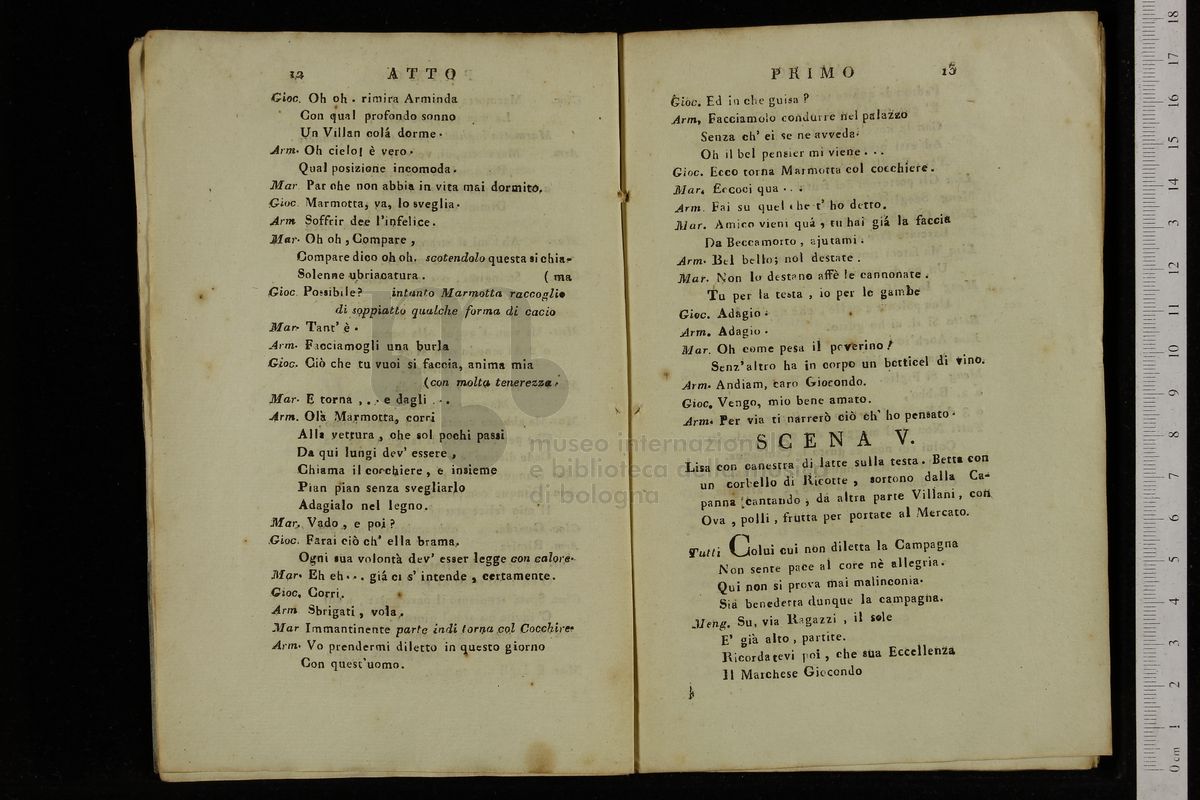 12 ATTO
Gioc. Oh oh . rimira Arminda
Con qual profondo sonno
Un Villan colá dorme .
Arm. Oh cielo! è vero .
Qual posizione incomoda .
Mar Par che non abbia in vita mai dormito.
Gioc. Marmotta, va, lo sveglia .
Arm Soffrir dee l'infelice .
Mar. Oh oh , Compare ,
Compare dico oh oh. scotendolo questa si chia-
Solenne ubriacatura . ( ma
Gioc. Possibile? intanto Marmotta raccoglie
di soppiatto qualche forma di cacio
Mar. Tant' è .
Arm. Facciamogli una burla
Gioc. Ciò che tu vuoi si faccia, anima mia
(con molta tenerezza .
Mar. E torna , . . e dagli . . .
Arm. Olà Marmotta, corri
Alla vettura , che sol pochi passi
Da qui lungi dev' essere ,
Chiama il cocchiere , e insieme
Pian pian senza svegliarlo
Adagialo nel legno .
Mar. Vado , e poi ?
Gioc. Farai ciò ch' ella brama,
Ogni sua volontà dev' esser legge con calore.
Mar. Eh eh . . . giá ci s' intende , certamente.
Gioc. Corri.
Arm Sbrigati , vola .
Mar Immantinente parte indi torna col Cocchire.
Arm. Vo prendermi diletto in questo giorno
Con quest'uomo.
PRIMO 13
Gioc. Ed in che guisa ?
Arm, Facciamolo condurre nel palazzo
Senza ch' ei se ne avveda.
Oh il bel pensier mi viene . . .
Gioc. Ecco torna Marmotta col cocchiere.
Mar. Eccoci qua . . .
Arm. Fai su quel che t' ho detto.
Mar. Amico vieni quá , tu hai giá la faccia
Da Beccamorto , ajutami .
Arm. Bel bello; nol destate .
Mar. Non lo destano affè le cannonate .
Tu per la testa , io per le gambe
Gioc. Adagio .
Arm. Adagio .
Mar. Oh come pesa il poverino !
Senz'altro ha in corpo un botticel di vino.
Arm. Andiam, caro Giocondo.
Gioc. Vengo, mio bene amato.
Arm. Per via ti narrerò ciò ch' ho pensato .
SCENA V.
Lisa con canestra di latte sulla testa . Betta con
un corbello di Ricotte , sortono dalla Ca-
panna cantando , da altra parte Villani, con
Ova , polli , frutta per portare al Mercato.
Tutti Colui cui non diletta la Campagna
Non sente pace al core nè allegria.
Qui non si prova mai malinconia.
Sia benedetta dunque la campagna.
Meng. Su, via Ragazzi , il sole
E' già alto , partite.
Ricordatevi poi , che sua Eccellenza
Il Marchese Giocondo
b
museo internazionale
e biblioteca della musica
di bologna
0 cm 1 2 3 4 5 6 7 8 9 10 11 12 13 14 15 16 17 18